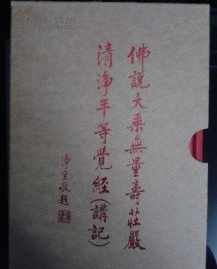 佛說大乘無量壽莊嚴
清淨平等覺經(講記)
淨空敬題